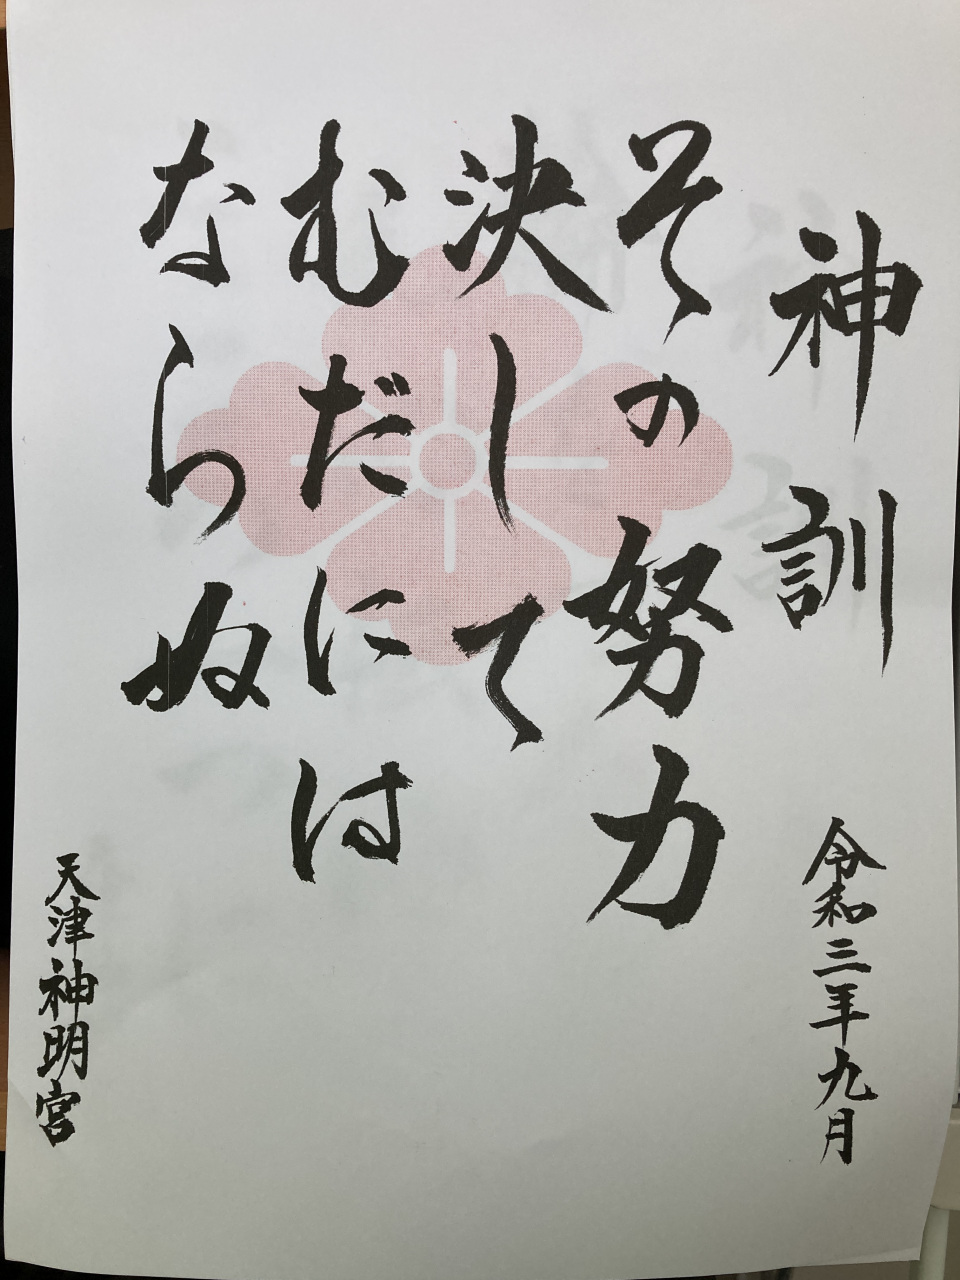 神訓
令和三年九月
その努力
決して
むだには
ならぬ
天津神明宮